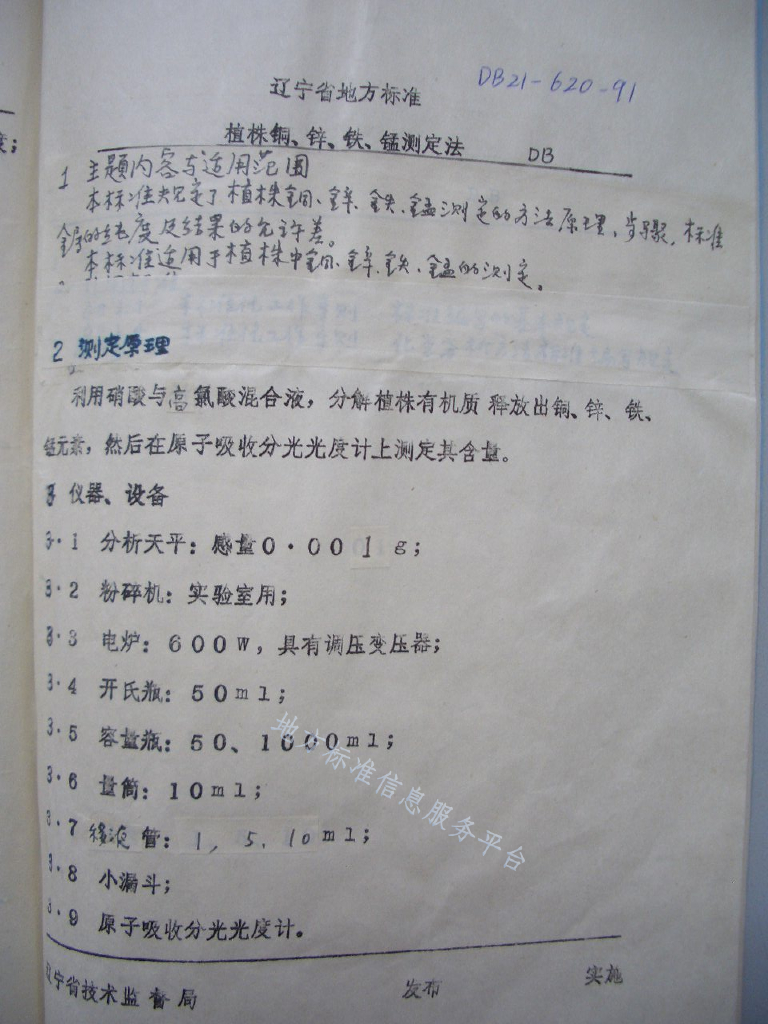 DB21-620-91
辽宁省地方标准
植株铜、锌、铁、锰测定法 DB
1 主题内容与适用范围
本标准规定了植株铜、锌、铁、锰测定的方法原理、步骤，标准
的纯度及结果的允许差。
本标准适用于植株中铜、锌、铁、锰的测定。
2 测定原理
利用硝酸与高氯酸混合液，分解植株有机质 释放出铜、锌、铁、
锰元素，然后在原子吸收分光光度计上测定其含量。
3 仪器、设备
3·1 分析天平：感量0·001g；
3·2 粉碎机：实验室用；
3·3 电炉：600W，具有调压变压器；
3·4 开氏瓶：50ml；
3·5 容量瓶：50、1000ml；
3·6 量筒：10ml；
3·7 移液管：1，5.10ml；
3·8 小漏斗；
3·9 原子吸收分光光度计。
地方标准信息服务平台
辽宁省技术监督局 发布 实施